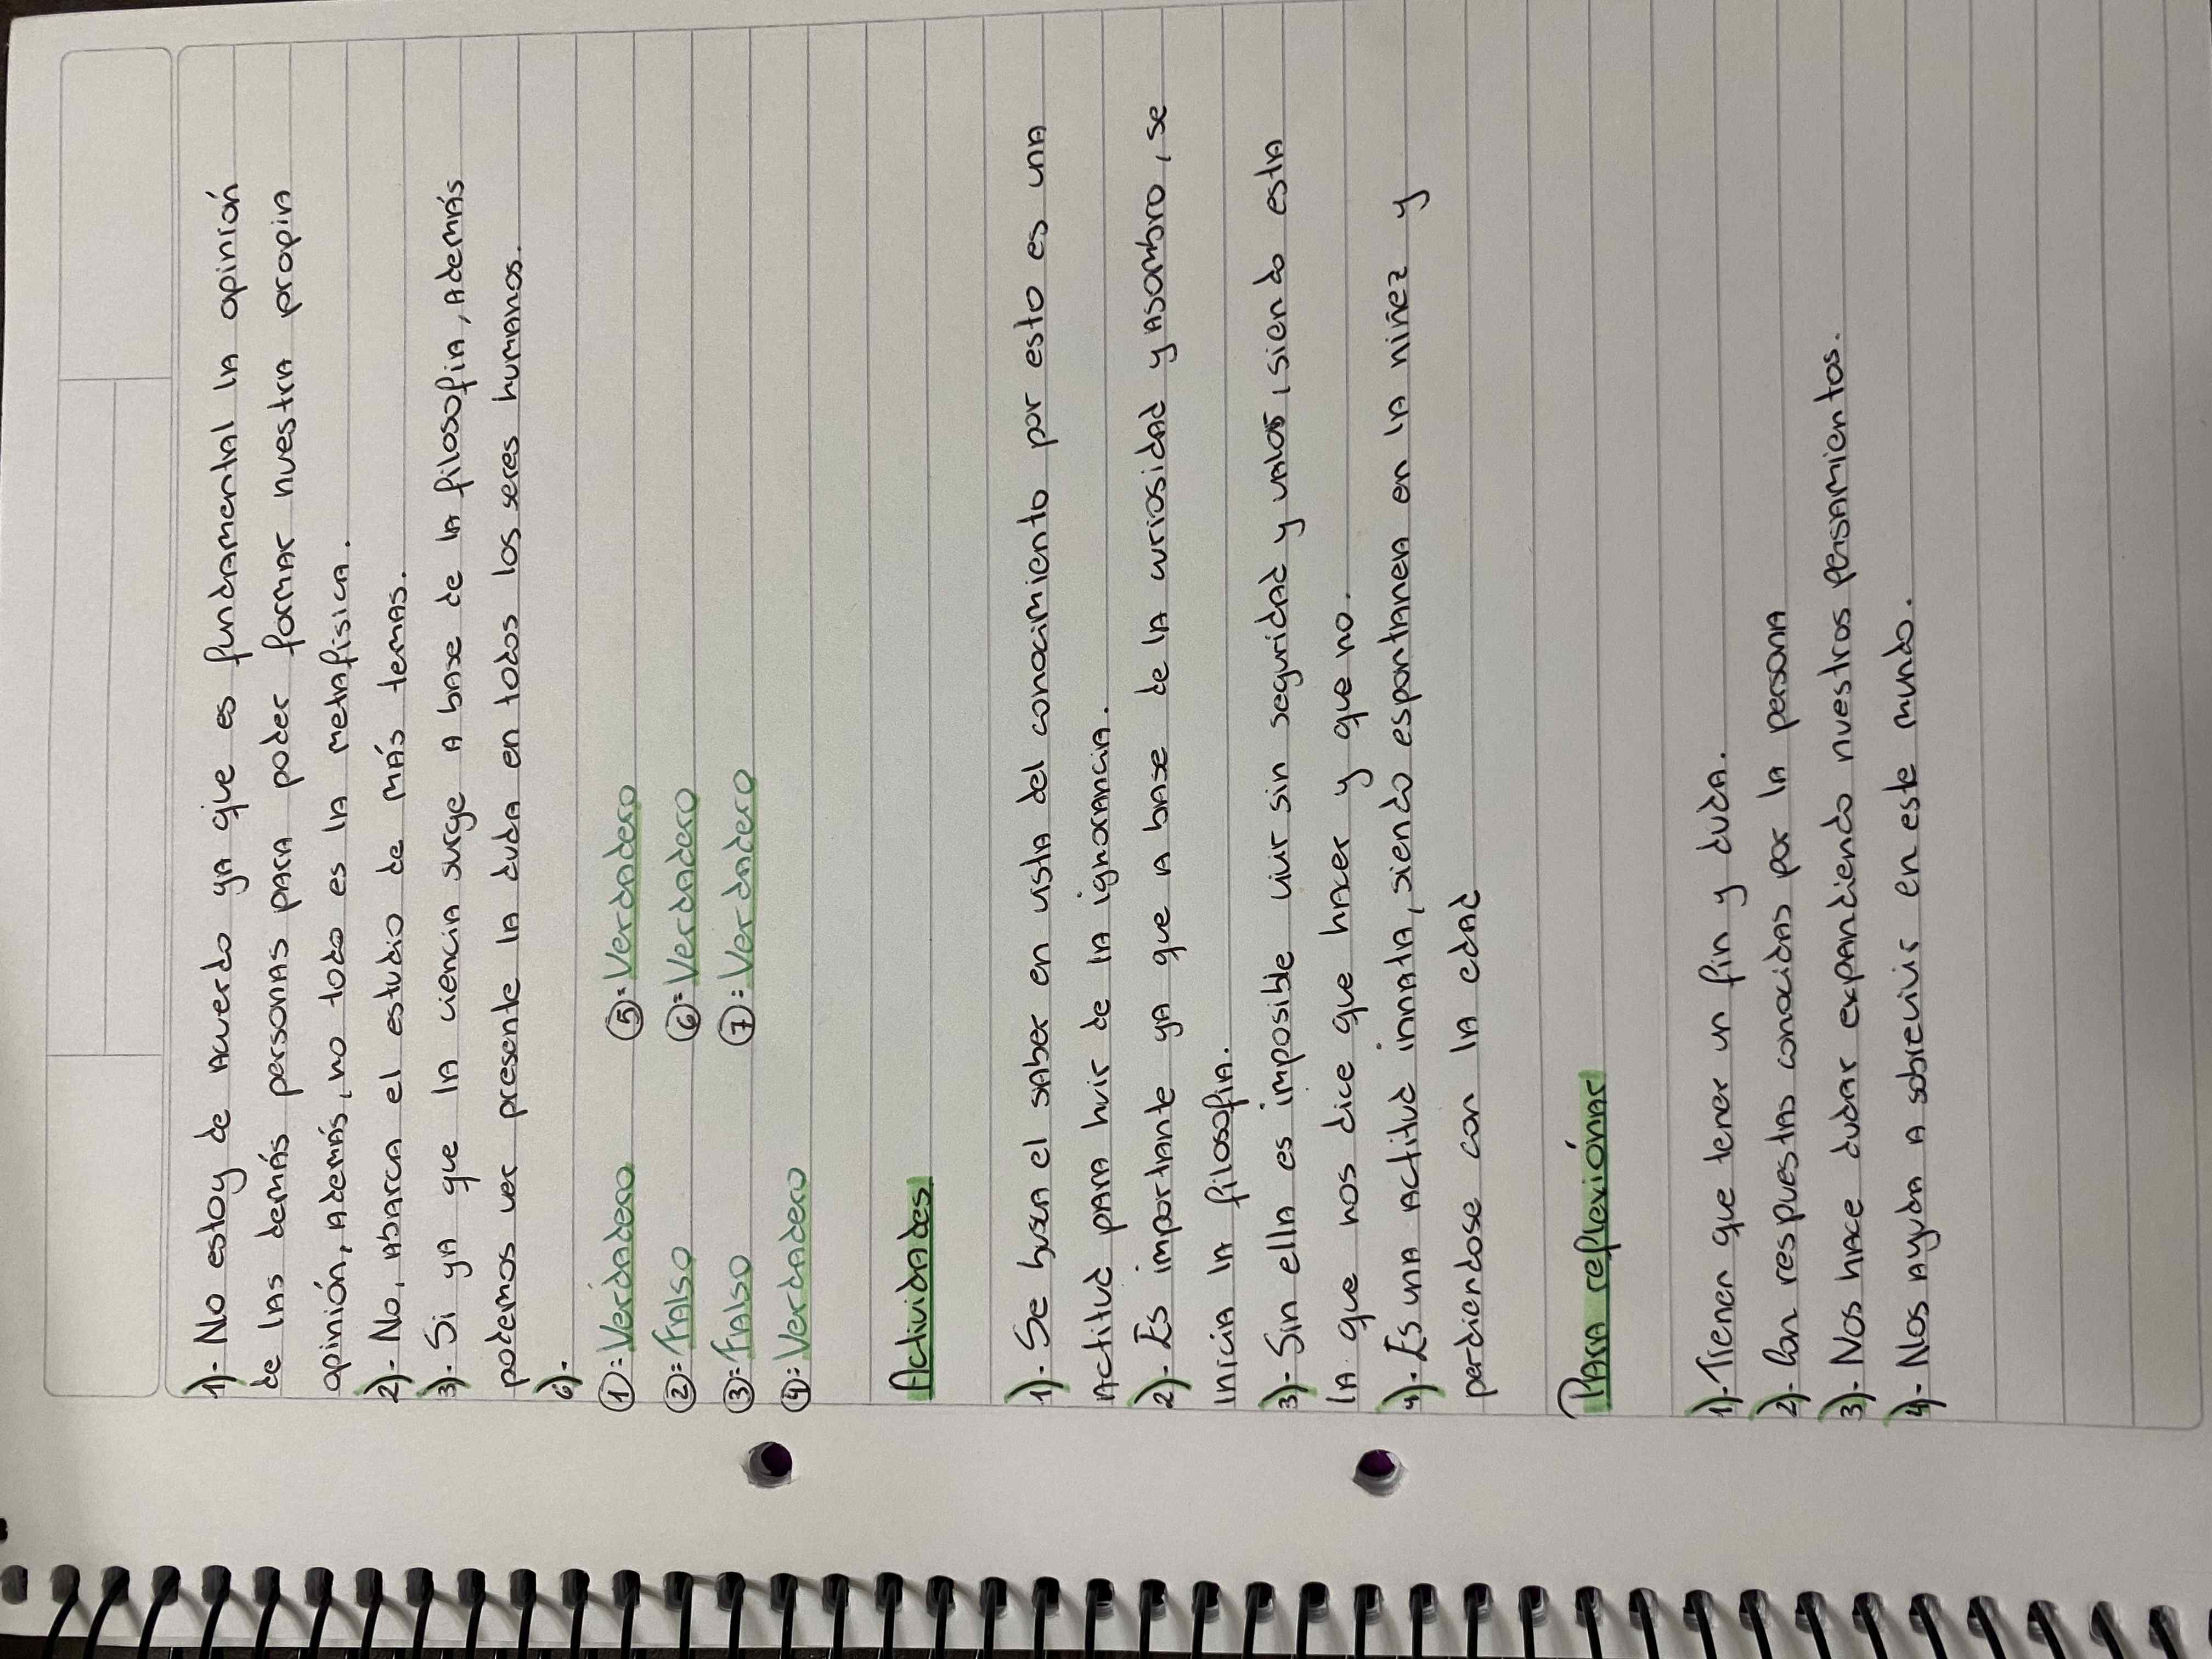 1)- No estoy de acuerdo ya que es fundamental la opinión
de las demás personas para poder formar nuestra propia
opinión, además, no todo es la metafísica.
2)- No, abarca el estudio de más temas.
3)- Si ya que la ciencia surge a base de la filosofia, además
podemos ver presente la duda en todos los seres humanos.
6)-
①: Verdadero ⑤: Verdadero
②: Falso ⑥: Verdadero
③: Falso ⑦: Verdadero
④: Verdadero
Actividades
1)- Se busca el saber en vista del conocimiento por esto es una
actitud para huir de la ignorancia.
2)- Es importante ya que a base de la curiosidad y asombro, se
inicia la filosofia.
3)- Sin ella es imposible vivir sin seguridad y valor, siendo esta
la que nos dice que hacer y que no.
4)- Es una actitud innata, siendo espontanea en la niñez y
perdiendose con la edad
Para reflexiónar
1)- Tienen que tener un fin y duda.
2)- Con respuestas conocidas por la persona
3)- Nos hace dudar expandiendo nuestros pensamientos.
4)- Nos ayuda a sobrevivir en este mundo.